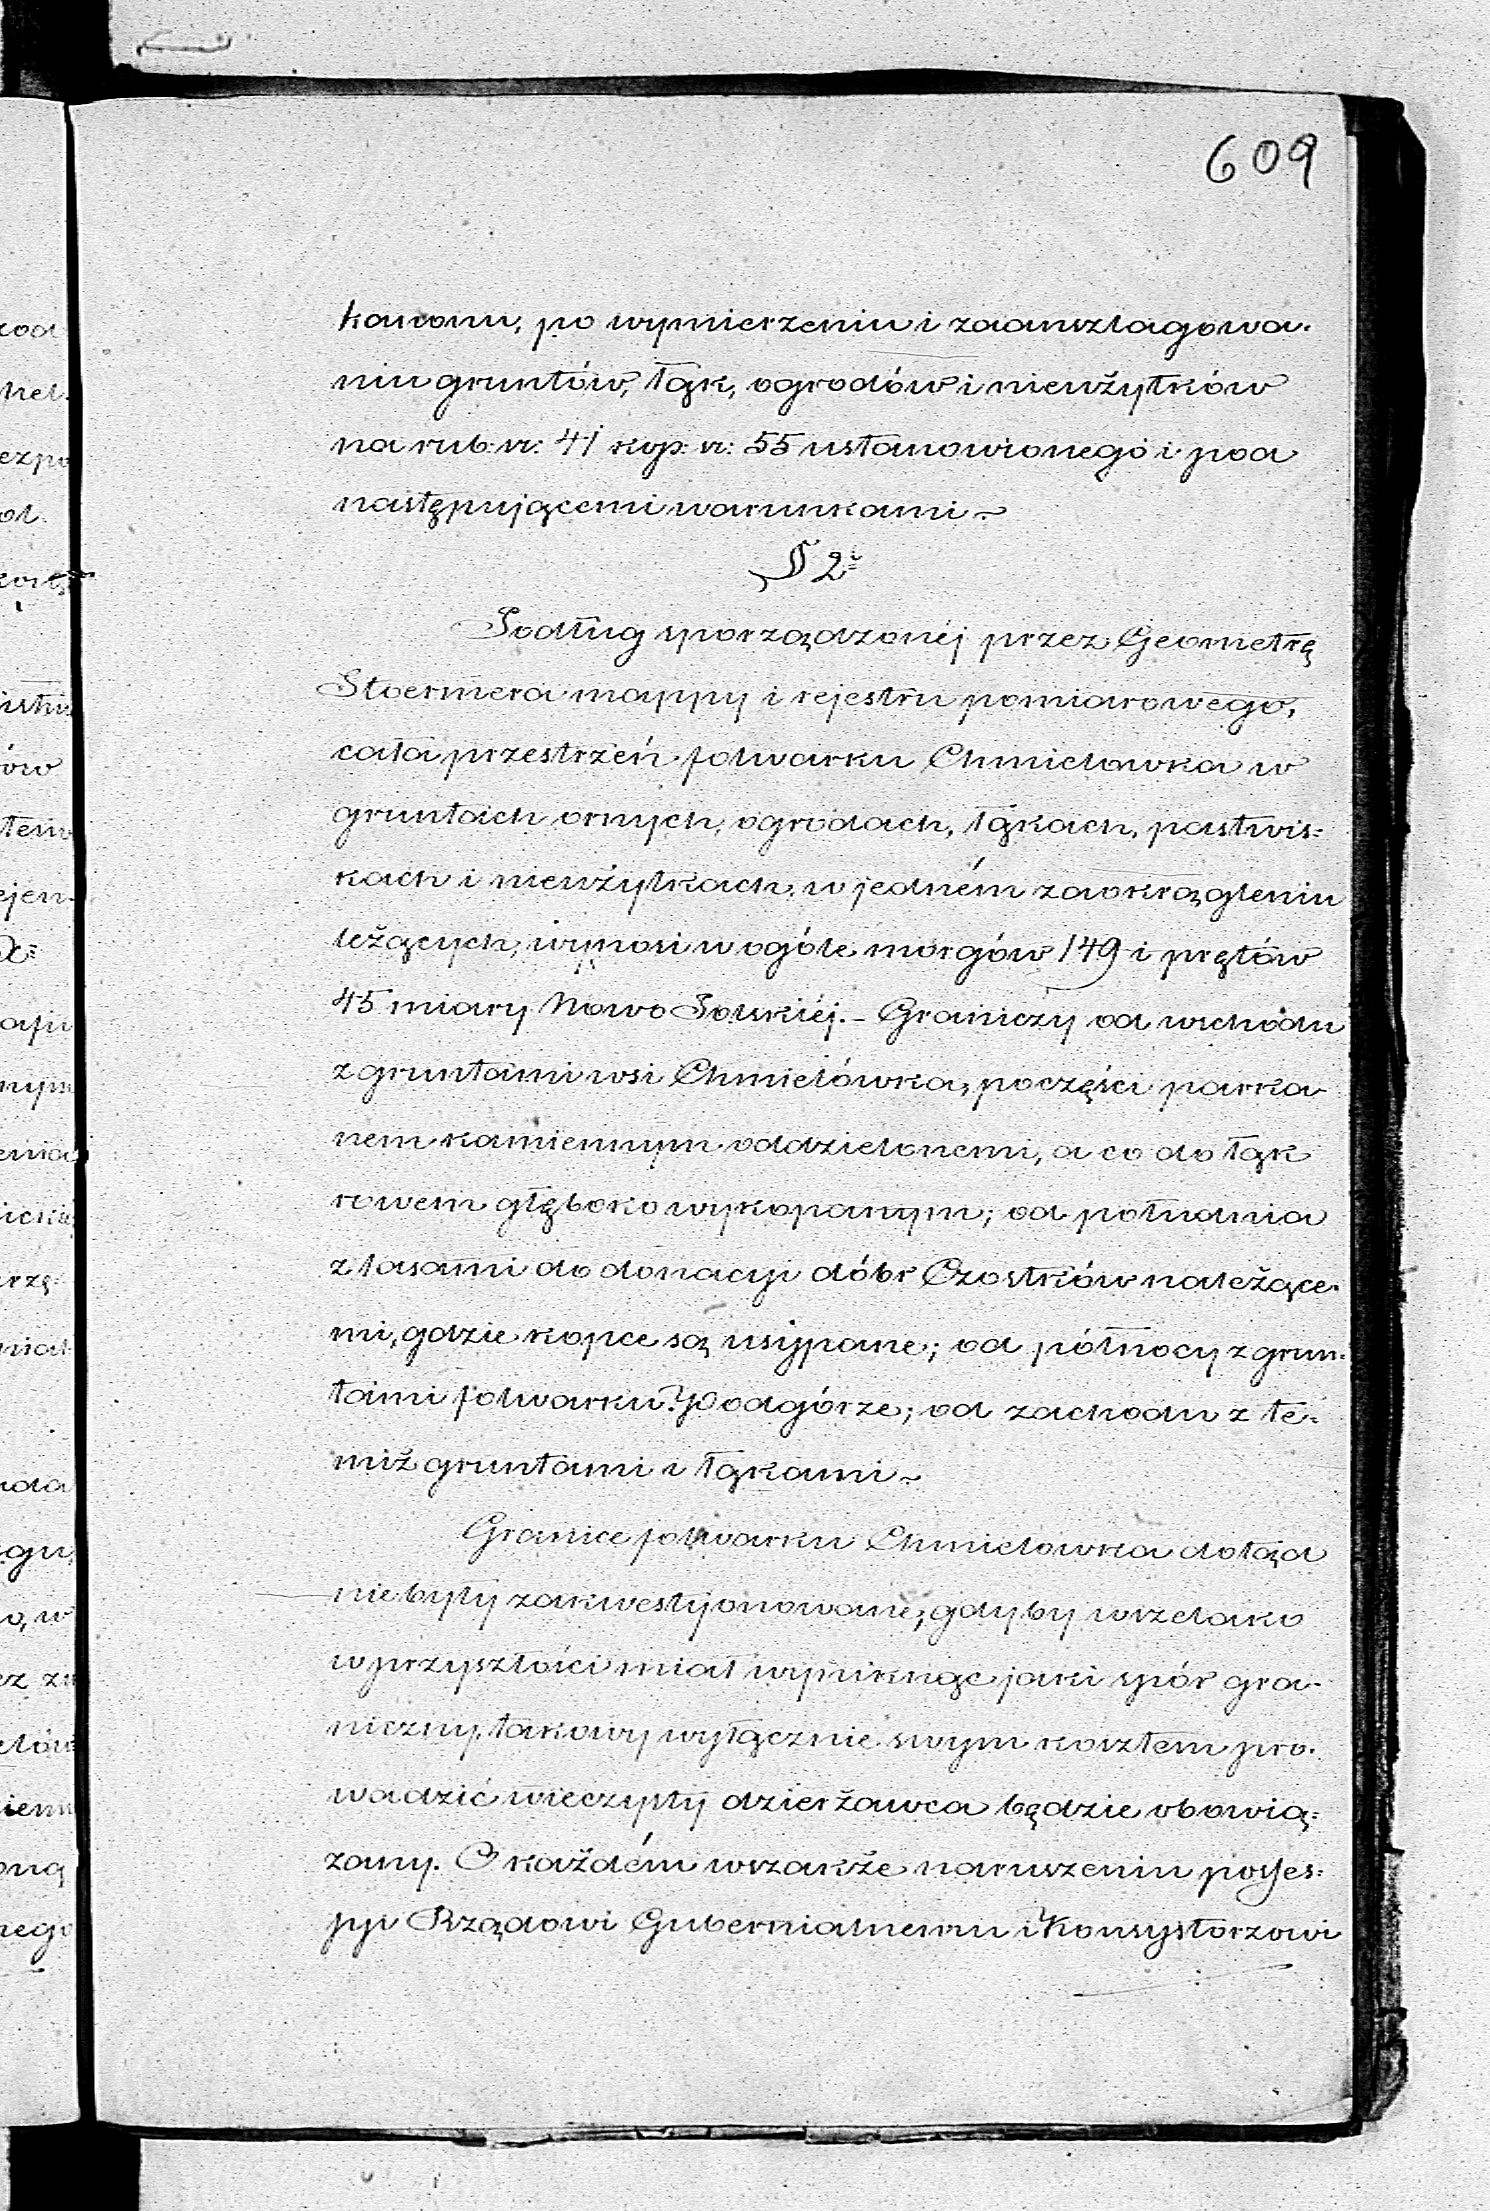 609
kanonu, po wymierzeniu i zaanszlagowa-
niu gruntów, łąk, ogrodów i nieużytków
na rub: sr: 41 kop: sr: 55 ustanowionego i pod
następującemi warunkami ~
§ 2.
Podług sporządzonéj przez Geometrę
Stoermera mappy i rejestru pomiarowego,
cała przestrzeń folwarku Chmielowka w
gruntach ornych, ogrodach, łąkach, pastwis-
kach i nieużytkach, w jedném zaokrągleniu
leżących, wynosi w ogóle morgów 149 i prętów
45 miary Nowo Polskiéj. - Graniczy od wschodu
z gruntami wsi Chmielówka, poczęści parka
nem kamiennym oddzielonemi, a co do łąk
rowem głęboko wykopanym; od południa
z lasami do donacyi dóbr Czostków należące-
mi, gdzie kopce są usypane; od północy z grun-
tami folwarku Podgórze; od zachodu z te-
miż gruntami i łąkami ~
Granice folwarku Chmielowka dotąd
nie były zakwestyonowane; gdyby wszelako
w przyszłości miał wyniknąć jaki spór gra-
niczny, takowy wyłącznie swym kosztem pro-
wadzić wieczysty dzierżawca będzie obowią-
zany. O każdém wszakże naruszeniu posses-
syi Rządowi Gubernialnemu i Konsystorzowi